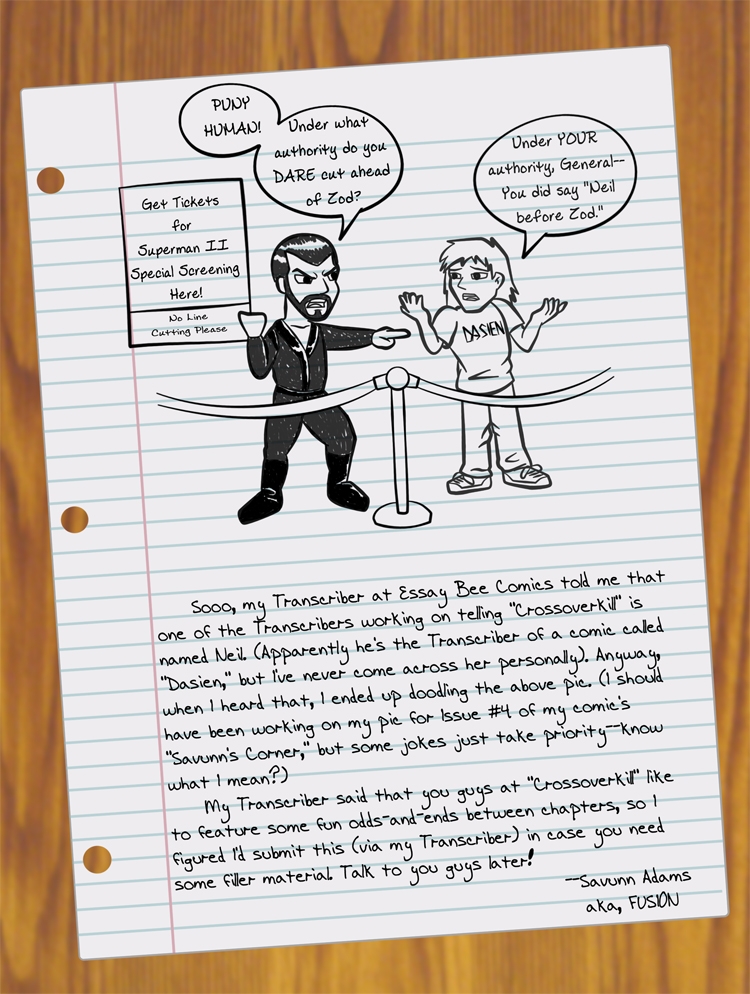 PUNY
HUMAN!
Under what
authority do you
DARE cut ahead
of Zod?
Under YOUR
authority, General--
You did say "Neil
before Zod."
Get Tickets
for
Superman II
Special Screening
Here!
No Line
Cutting Please
DASIEN
Sooo, my Transcriber at Essay Bee Comics told me that
one of the Transcribers working on telling "Crossoverkill" is
named Neil. (Apparently he's the Transcriber of a comic called
"Dasien," but I've never come across her personally). Anyway,
when I heard that, I ended up doodling the above pic. (I should
have been working on my pic for Issue #4 of my comic's
"Savunn's Corner," but some jokes just take priority--know
what I mean?)
My Transcriber said that you guys at "Crossoverkill" like
to feature some fun odds-and-ends between chapters, so I
figured I'd submit this (via my Transcriber) in case you need
some filler material. Talk to you guys later!
--Savunn Adams
aka, FUSION